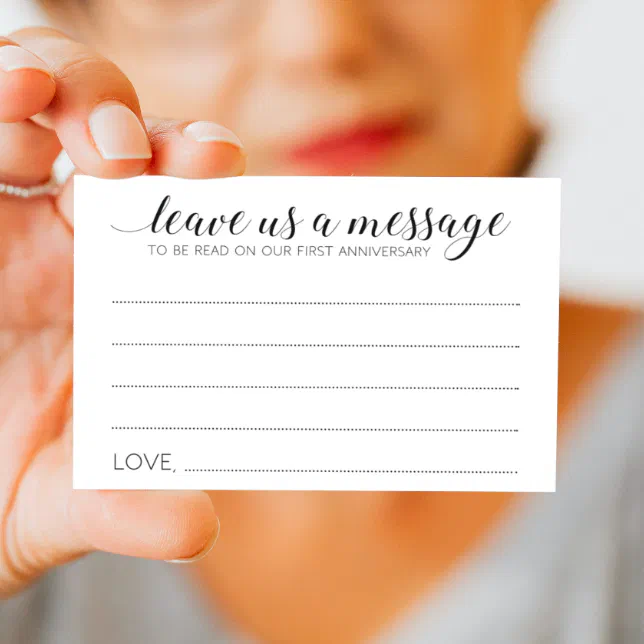 leave us a message
TO BE READ ON OUR FIRST ANNIVERSARY
LOVE,